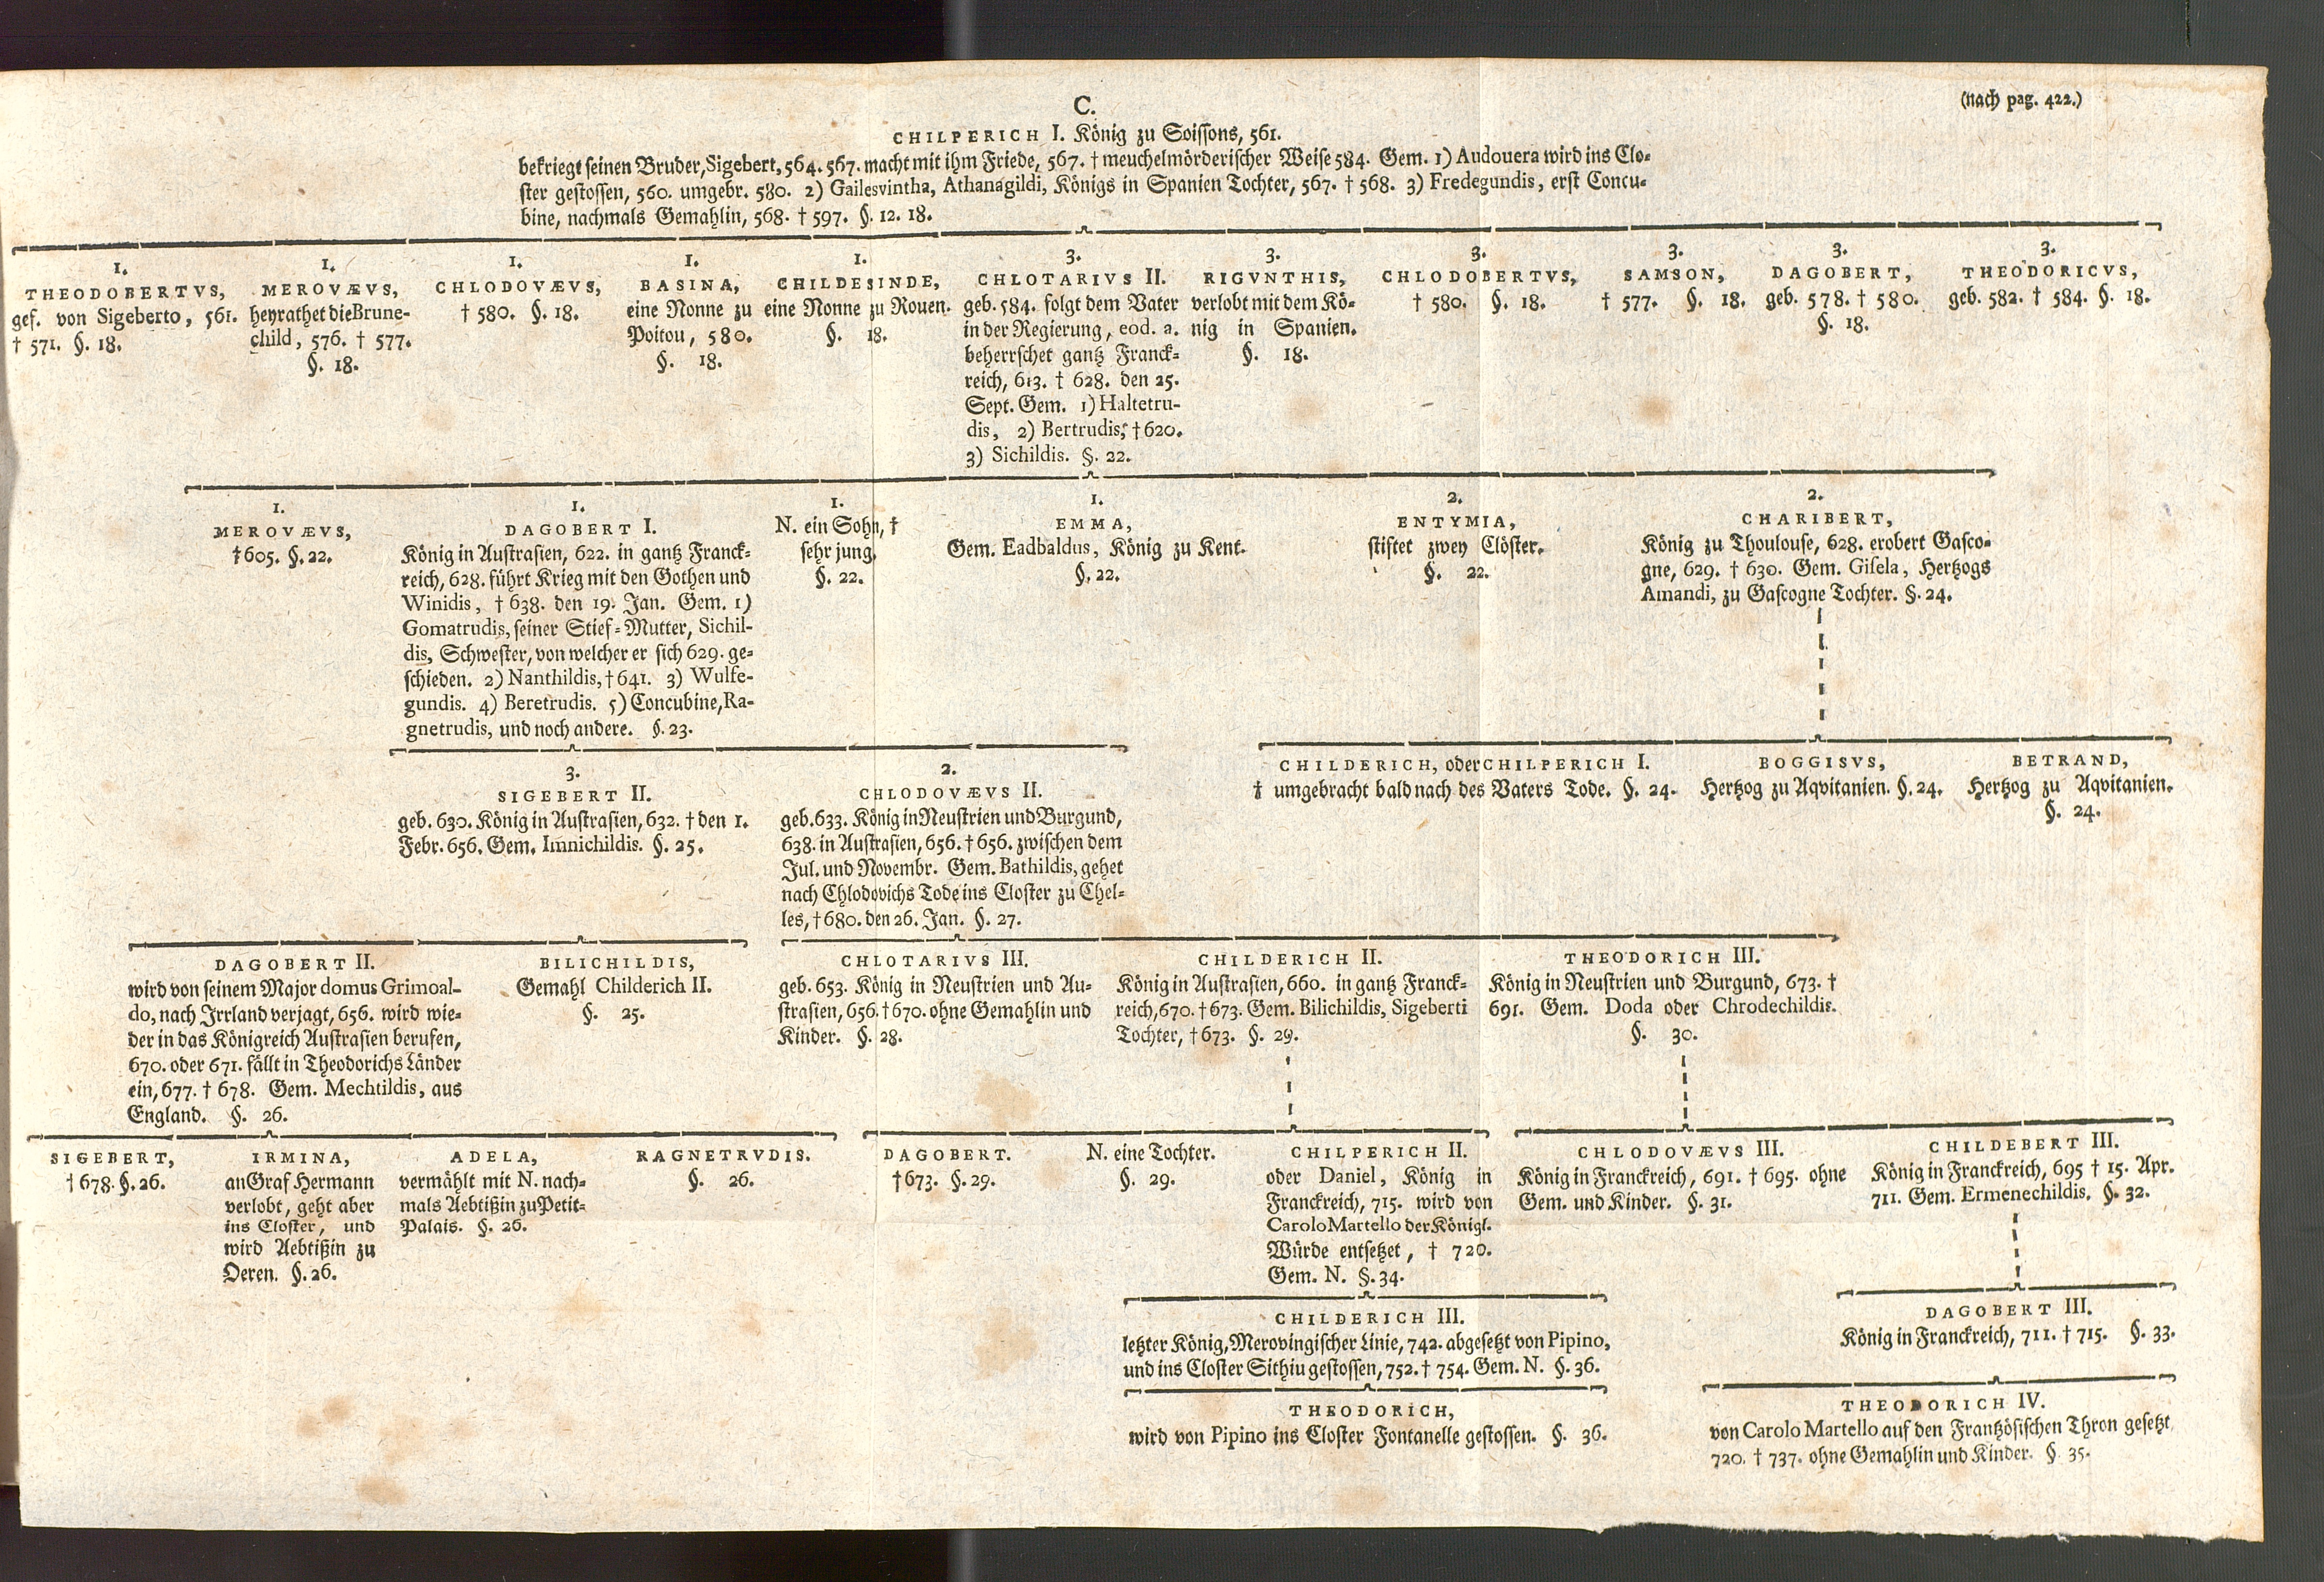 C.
(nach pag. 422.)
CHILPERICH I. König zu Soissons, 561.
bekriegt seinen Bruder, Sigebert, 564. 567. macht mit ihm Friede, 567. † meuchelmörderischer Weise 584. Gem. 1) Audouera wird ins Clo-
ster gestossen, 560. umgebr. 580. 2) Gailesvintha, Athanagildi, Königs in Spanien Tochter, 567. † 568. 3) Fredegundis, erst Concu-
bine, nachmals Gemahlin, 568. † 597. §. 12. 18.
1.
THEODOBERTVS,
gef. von Sigeberto, 561.
† 571. §. 18.
1.
MEROVÆVS,
heyrathet die Brune-
child, 576. † 577.
§. 18.
1.
CHLODOVÆVS,
† 580. §. 18.
1.
BASINA,
eine Nonne zu
Poitou, 580.
§. 18.
1.
CHILDESINDE,
eine Nonne zu Rouen.
§. 18.
3.
CHLOTARIVS II.
geb. 584. folgt dem Vater
in der Regierung, eod. a.
beherrschet gantz Franck-
reich, 613. † 628. den 25.
Sept. Gem. 1) Haltetru-
dis, 2) Bertrudis, † 620.
3) Sichildis. §. 22.
3.
RIGVNTHIS,
verlobt mit dem Kö-
nig in Spanien.
§. 18.
3.
CHLODOBERTVS,
† 580. §. 18.
3.
SAMSON,
† 577. §. 18.
3.
DAGOBERT,
geb. 578. † 580.
§. 18.
3.
THEODORICVS,
geb. 582. † 584. §. 18.
1.
MEROVÆVS,
† 605. §. 22.
1.
DAGOBERT I.
König in Austrasien, 622. in gantz Franck-
reich, 628. führt Krieg mit den Gothen und
Winidis, † 638. den 19. Jan. Gem. 1)
Gomatrudis, seiner Stief-Mutter, Sichil-
dis, Schwester, von welcher er sich 629. ge-
schieden. 2) Nanthildis, † 641. 3) Wulfe-
gundis. 4) Beretrudis. 5) Concubine, Ra-
gnetrudis, und noch andere. §. 23.
1.
N. ein Sohn, †
sehr jung.
§. 22.
1.
EMMA,
Gem. Eadbaldus, König zu Kent.
§. 22.
2.
ENTYMIA,
stiftet zwey Clöster.
§. 22.
2.
CHARIBERT,
König zu Thoulouse, 628. erobert Gasco-
gne, 629. † 630. Gem. Gisela, Hertzogs
Amandi, zu Gascogne Tochter. §. 24.
3.
SIGEBERT II.
geb. 630. König in Austrasien, 632. † den 1.
Febr. 656. Gem. Imnichildis. §. 25.
2.
CHLODOVÆVS II.
geb. 633. König in Neustrien und Burgund,
638. in Austrasien, 656. † 656. zwischen dem
Jul. und Novembr. Gem. Bathildis, gehet
nach Chlodovichs Tode ins Closter zu Chel-
les, † 680. den 26. Jan. §. 27.
CHILDERICH, oder CHILPERICH I.
† umgebracht bald nach des Vaters Tode. §. 24.
BOGGISVS,
Hertzog zu Aqvitanien. §. 24.
BETRAND,
Hertzog zu Aqvitanien.
§. 24.
DAGOBERT II.
wird von seinem Major domus Grimoal-
do, nach Irrland verjagt, 656. wird wie-
der in das Königreich Austrasien berufen,
670. oder 671. fällt in Theodorichs Länder
ein, 677. † 678. Gem. Mechtildis, aus
England. §. 26.
BILICHILDIS,
Gemahl Childerich II.
§. 25.
CHLOTARIVS III.
geb. 653. König in Neustrien und Au-
strasien, 656. † 670. ohne Gemahlin und
Kinder. §. 28.
CHILDERICH II.
König in Austrasien, 660. in gantz Franck-
reich, 670. † 673. Gem. Bilichildis, Sigeberti
Tochter, † 673. §. 29.
THEODORICH III.
König in Neustrien und Burgund, 673. †
691. Gem. Doda oder Chrodechildis.
§. 30.
SIGEBERT,
† 678. §. 26.
IRMINA,
an Graf Hermann
verlobt, geht aber
ins Closter, und
wird Aebtißin zu
Oeren. §. 26.
ADELA,
vermählt mit N. nach-
mals Aebtißin zu Petit-
Palais. §. 26.
RAGNETRVDIS.
§. 26.
DAGOBERT.
† 673. §. 29.
N. eine Tochter.
§. 29.
CHILPERICH II.
oder Daniel, König in
Franckreich, 715. wird von
Carolo Martello der Königl.
Würde entsetzet, † 720.
Gem. N. §. 34.
CHLODOVÆVS III.
König in Franckreich, 691. † 695. ohne
Gem. und Kinder. §. 31.
CHILDEBERT III.
König in Franckreich, 695 † 15. Apr.
711. Gem. Ermenechildis. §. 32.
CHILDERICH III.
letzter König, Merovingischer Linie, 742. abgesetzt von Pipino,
und ins Closter Sithiu gestossen, 752. † 754. Gem. N. §. 36.
DAGOBERT III.
König in Franckreich, 711. † 715. §. 33.
THEODORICH,
wird von Pipino ins Closter Fontanelle gestossen. §. 36.
THEODORICH IV.
von Carolo Martello auf den Frantzösischen Thron gesetzt,
720. † 737. ohne Gemahlin und Kinder. § 35.